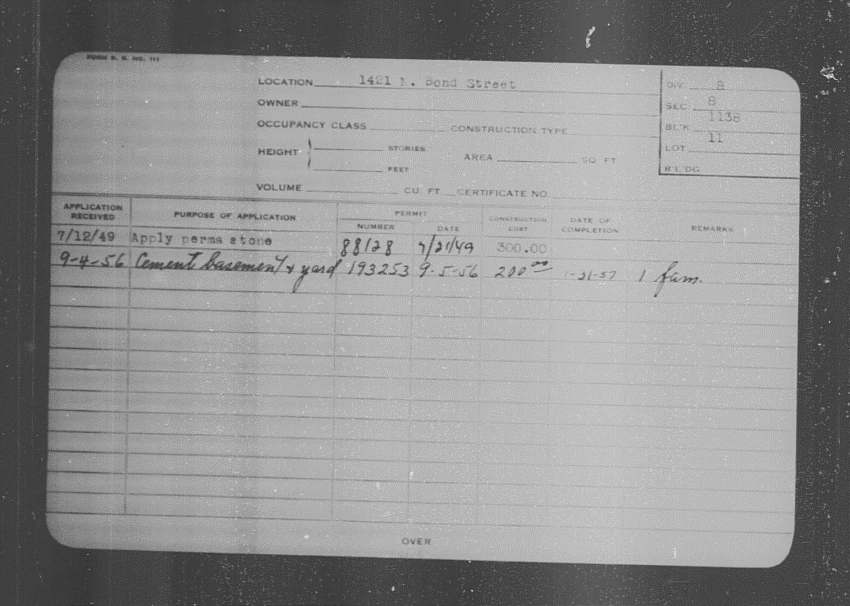 FORM D. B. NO. 111
LOCATION 1421 N. Bond Street
DIV. 8
OWNER
SEC. 8
OCCUPANCY CLASS CONSTRUCTION TYPE
BL'K 1138
HEIGHT STORIES
FEET
AREA SQ. FT
LOT 11
BLDG
VOLUME CU. FT. CERTIFICATE NO
APPLICATION RECEIVED PURPOSE OF APPLICATION PERMIT NUMBER DATE CONSTRUCTION COST DATE OF COMPLETION REMARKS
7/12/49 Apply perma stone 88128 7/21/49 300.00
9-4-56 Cement basement & yard 193253 9-5-56 200.00 1-21-57 1 fam.
OVER